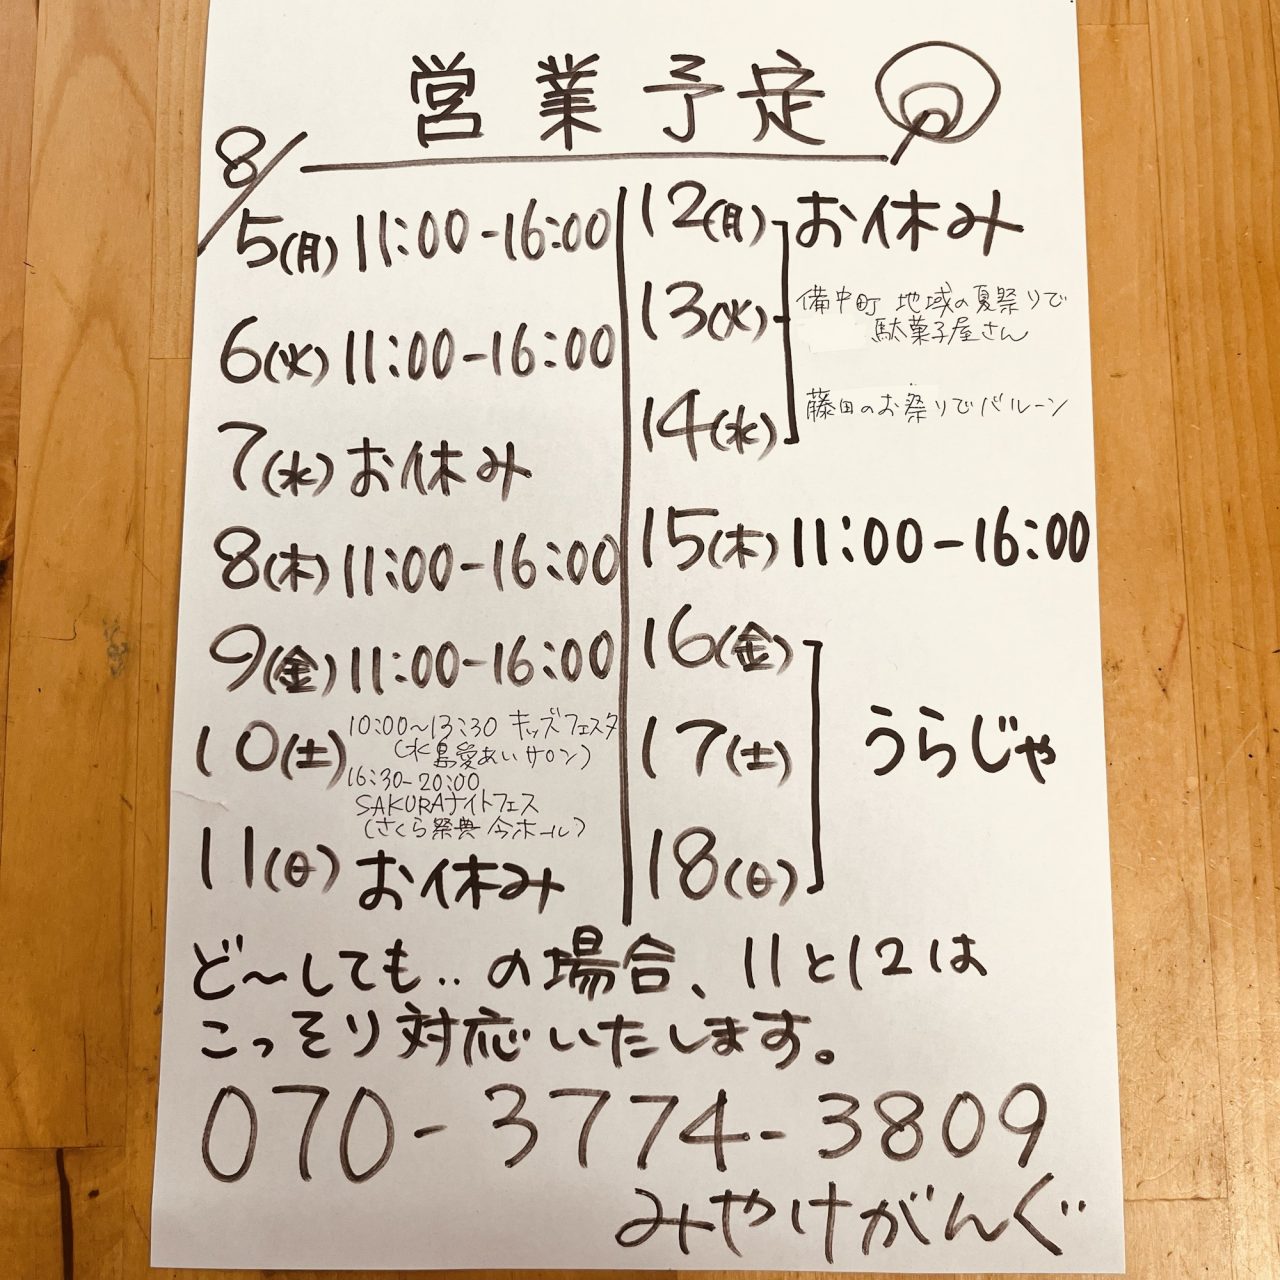 営業予定
8/
5(月) 11:00-16:00
6(火) 11:00-16:00
7(水) お休み
8(木) 11:00-16:00
9(金) 11:00-16:00
10(土) 10:00~13:30 キッズフェスタ
(水島愛あいサロン)
16:30-20:00
SAKURAナイトフェス
(さくら祭典 今ホール)
11(日) お休み
12(月) お休み
13(火) 備中町 地域の夏祭りで
駄菓子屋さん
14(水) 藤田のお祭りでバルーン
15(木) 11:00-16:00
16(金)
17(土) うらじゃ
18(日)
ど〜しても‥の場合、11と12は
こっそり対応いたします。
070-3774-3809
みやけがんぐ